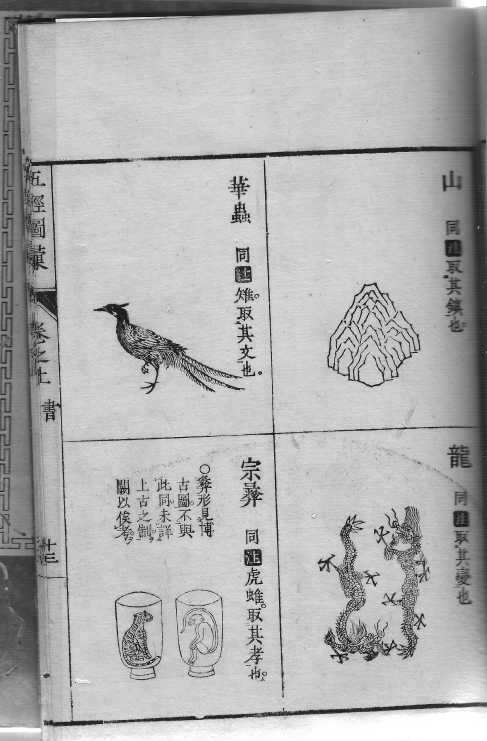 山
同注取其鎮也
龍
同注取其變也
華蟲
同注雉取其文也。
宗彝
同注虎蜼取其孝也。
○彝形見博
古圖不與
此同未詳
上古之制
闕以俟考
五經圖彙
卷之上
書
十三